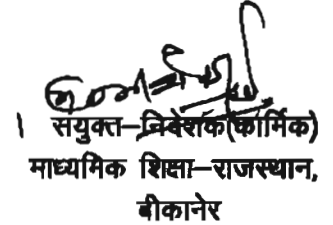 । सयुक्त–निदेशक(कार्मिक)
माध्यमिक शिक्षा–राजस्थान,
बीकानेर